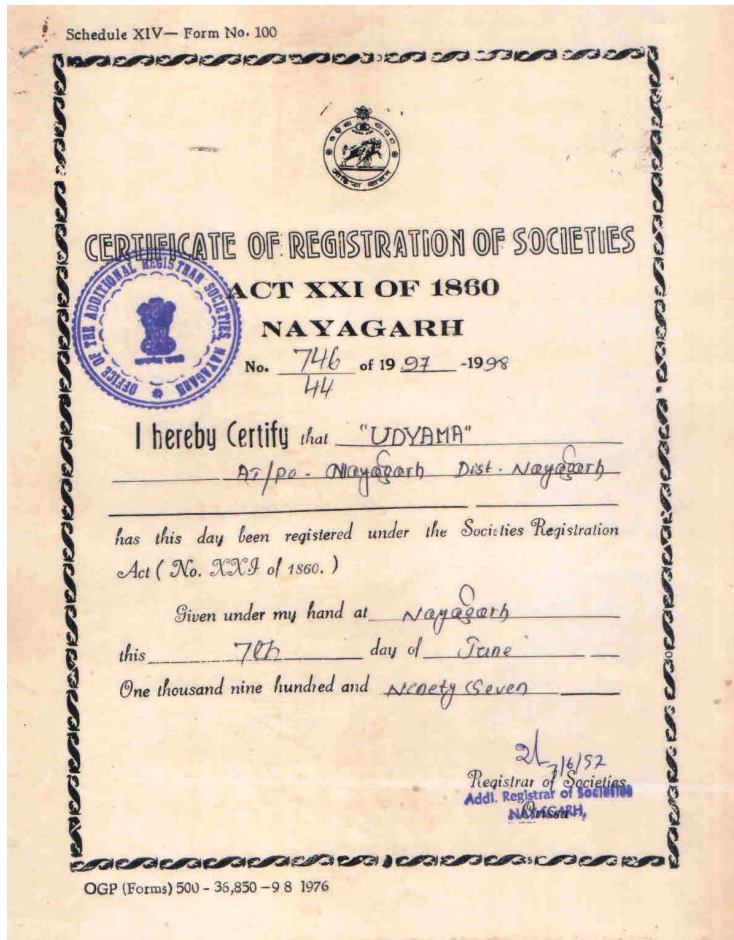 Schedule XIV— Form No. 100
CERTIFICATE OF REGISTRATION OF SOCIETIES
OFFICE OF THE ADDITIONAL REGISTRAR SOCIETIES, NAYAGARH
ACT XXI OF 1860
NAYAGARH
No. 746/44 of 1997-1998
I hereby Certify that "UDYAMA"
AT/PO- Nayagarh Dist- Nayagarh
has this day been registered under the Societies Registration
Act ( No. XXI of 1860. )
Given under my hand at Nayagarh
this 7th day of June
One thousand nine hundred and Ninety Seven
Registrar of Societies
Addl. Registrar of Societies
Orissa
NAYAGARH,
OGP (Forms) 500 - 36,850 -9 8 1976